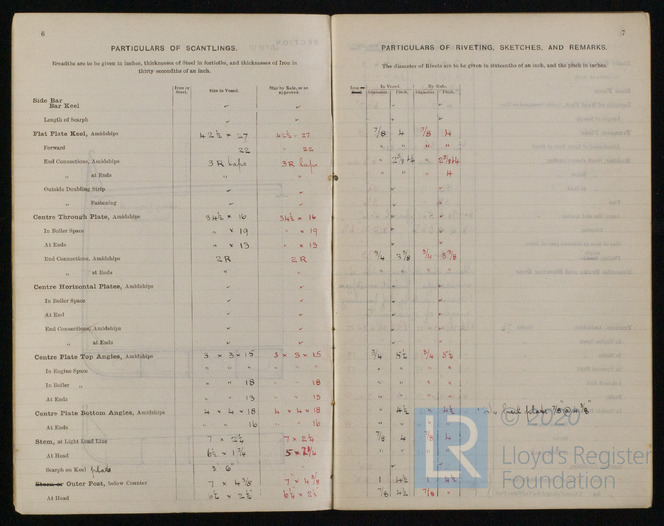 6
PARTICULARS OF SCANTLINGS.
Breadths are to be given in inches, thicknesses of Steel in fortieths, and thicknesses of Iron in
thirty-seconditis of an inch.
Iron or Steel. Size in Vessel. Size by Rule, or as approved.
Side Bar
Bar Keel
Length of Scarph
Flat Plate Keel, Amidships 42½ × 27 42½ × 27
Forward 22 22
End Connections, Amidships 3 R Laps 3 R Laps
" at Ends " "
Outside Doubling Strip
" Fastening
Centre Through Plate, Amidships 34½ × 16 34½ × 16
In Boiler Space " × 19 " × 19
At Ends " × 13 " × 13
End Connections, Amidships 2 R 2 R
" at Ends " "
Centre Horizontal Plates, Amidships
In Boiler Space
At End
End Connections, Amidships
" at Ends
Centre Plate Top Angles, Amidships 3 × 3 × 15 3 × 3 × 15
In Engine Space " " " " " "
In Boiler " " " 18 " " 18
At Ends " " 13 " " 13
Centre Plate Bottom Angles, Amidships 4 × 4 × 18 4 × 4 × 18
At Ends 16 16
Stem, at Light Load Line 7 × 2¼ 7 × 2¼
At Head 6½ × 1¾
Scarph on Keel plate 3' 6"
Stern or Outer Post, below Counter 7 × 4⅜ 7 × 4⅜
At Head 6½ × 2½ 6½ × 2½
7
PARTICULARS OF RIVETING, SKETCHES, AND REMARKS.
The diameter of Rivets are to be given in sixteenths of an inch, and the pitch in inches.
Iron or Steel. In Vessel. By Rule.
Diameter. Pitch. Diameter. Pitch.
7/8 4 7/8 4
" " " "
" "
" 4
3/4 3⅜ 3/4 3⅜
" " " "
3/4 5½ 3/4 5½
" " " "
" " " "
" " " "
" 4½ " 4½
7/8 4 7/8 4
1 4½ 1 4½
7/8 4½ 7/8 "
© 2020
LR
Lloyd's Register
Foundation